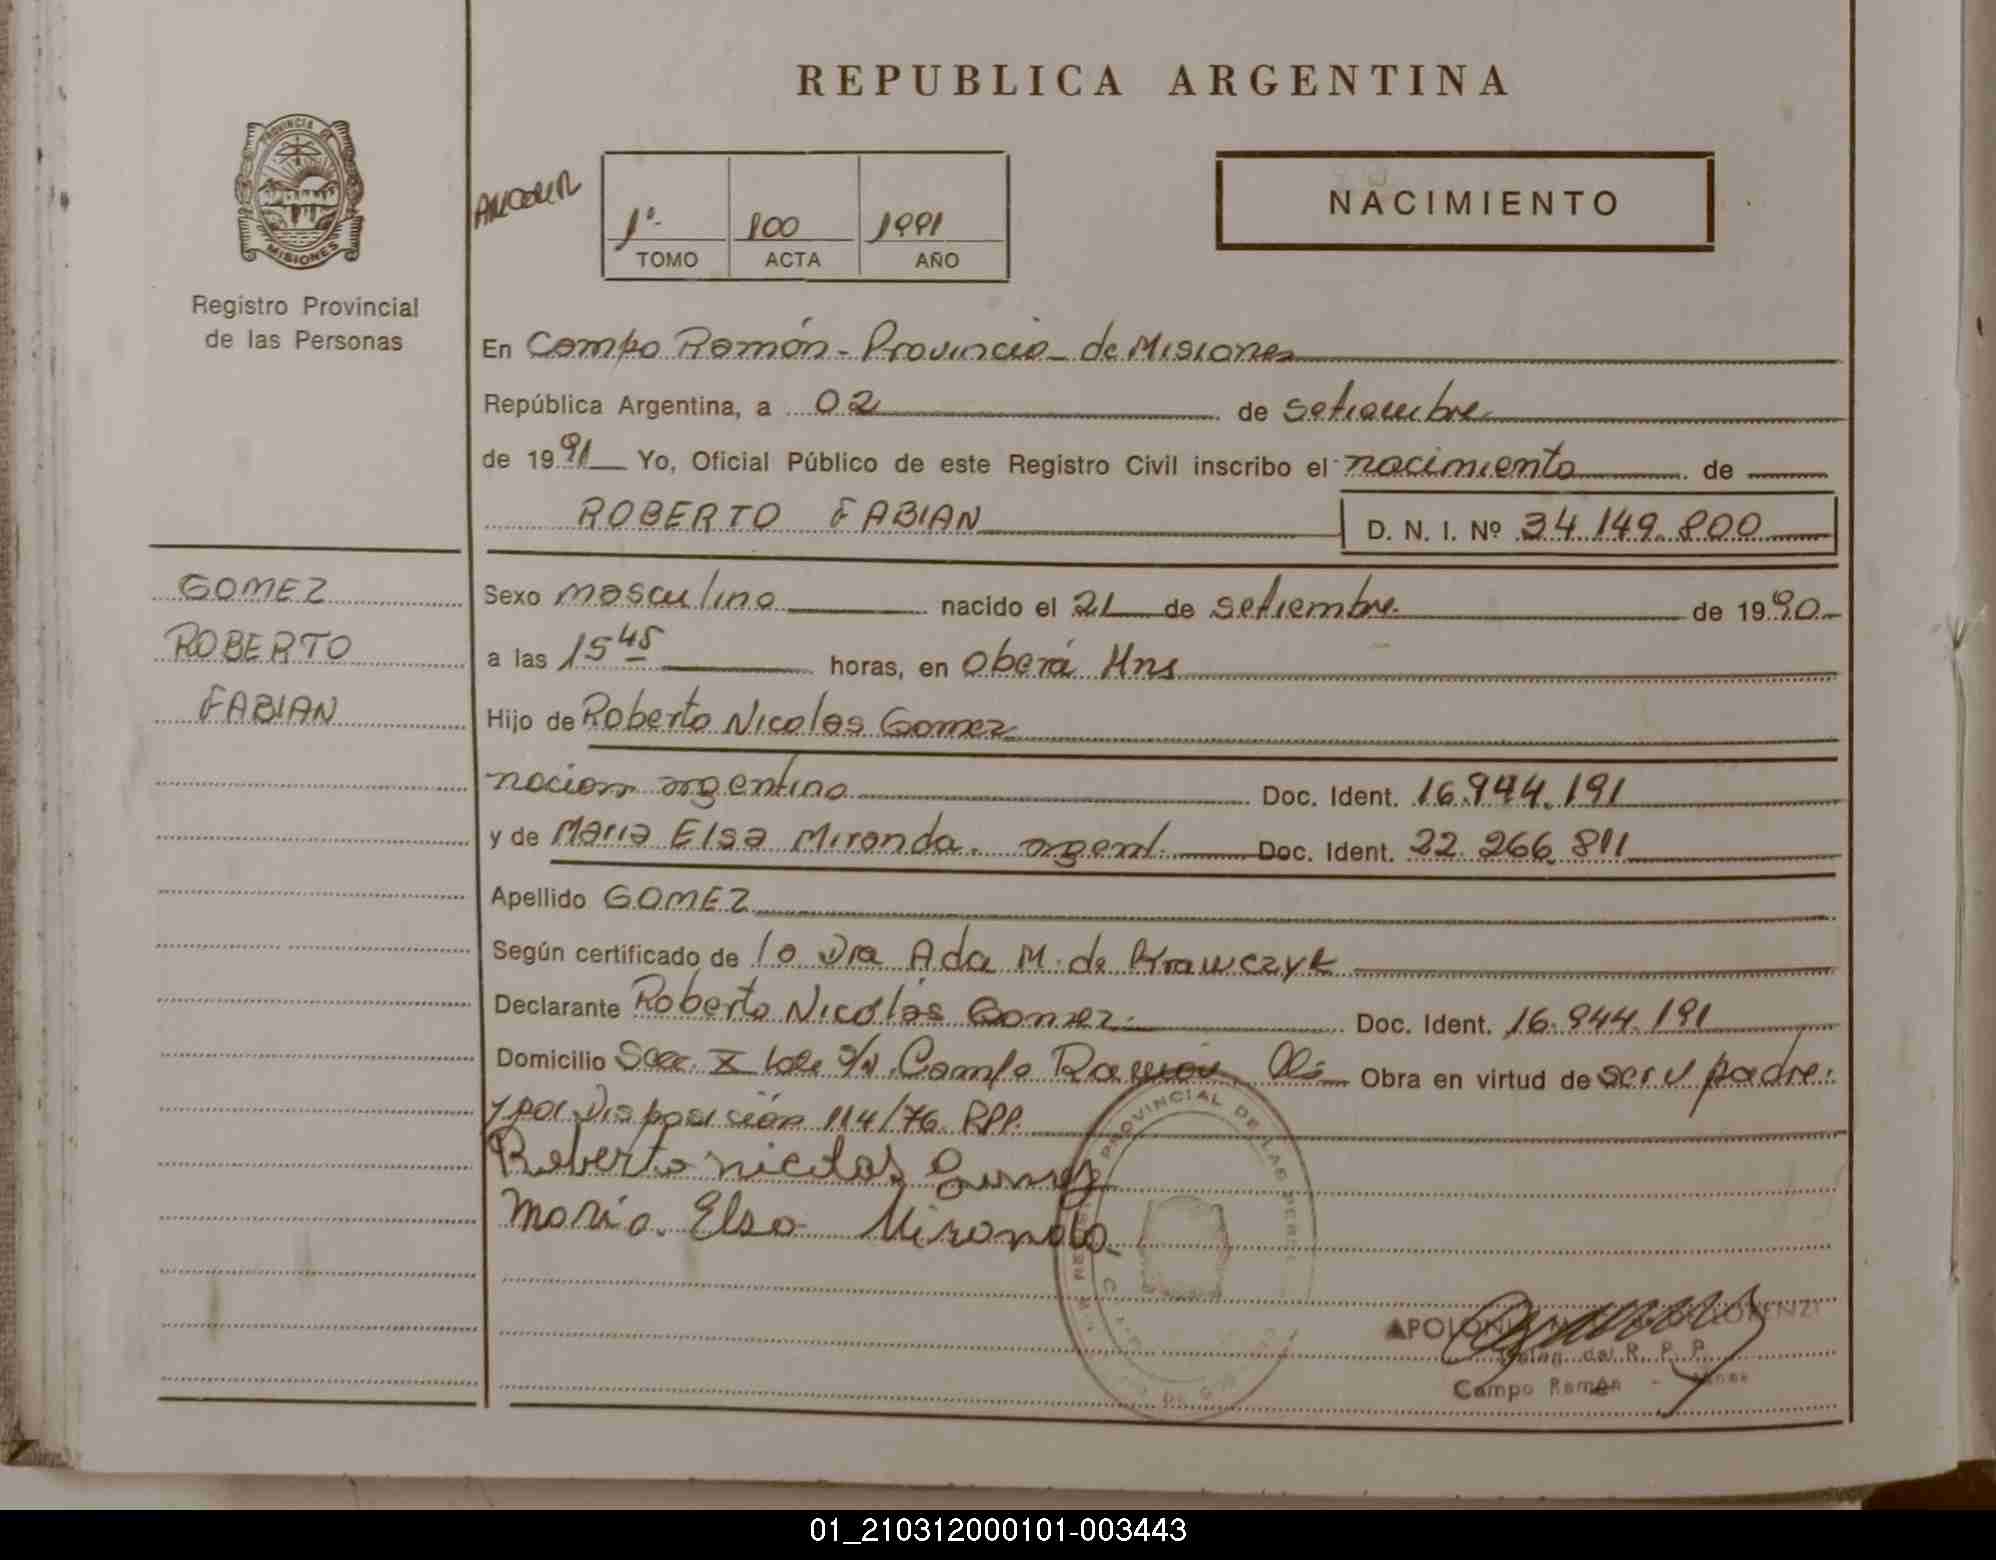 REPUBLICA ARGENTINA
PROVINCIA DE
MISIONES
Registro Provincial
de las Personas
1º
100
1991
TOMO
ACTA
AÑO
NACIMIENTO
En Campo Ramón - Provincia de Misiones
República Argentina, a 02 de setiembre
de 1991 Yo, Oficial Público de este Registro Civil inscribo el nacimiento de
ROBERTO FABIAN
D. N. I. Nº 34.149.800
GOMEZ
ROBERTO
FABIAN
Sexo masculino nacido el 21 de setiembre de 1990
a las 15 45 horas, en Oberá Mns
Hijo de Roberto Nicolas Gomez
nacion argentina Doc. Ident. 16.944.191
y de Maria Elsa Miranda. argent. Doc. Ident. 22.266.811
Apellido GOMEZ
Según certificado de la Dra Ada M. de Krawczyk
Declarante Roberto Nicolás Gomez Doc. Ident. 16.944.191
Domicilio Secc. X lote S/N. Campo Ramón Obra en virtud de ser padre
y por Disposición 114/76 RPP.
Roberto nicolas Gomez
Maria Elsa Miranda
PROVINCIAL DE LAS
APOLONIA LORENZI
del R. P. P.
Campo Ramón
01_210312000101-003443